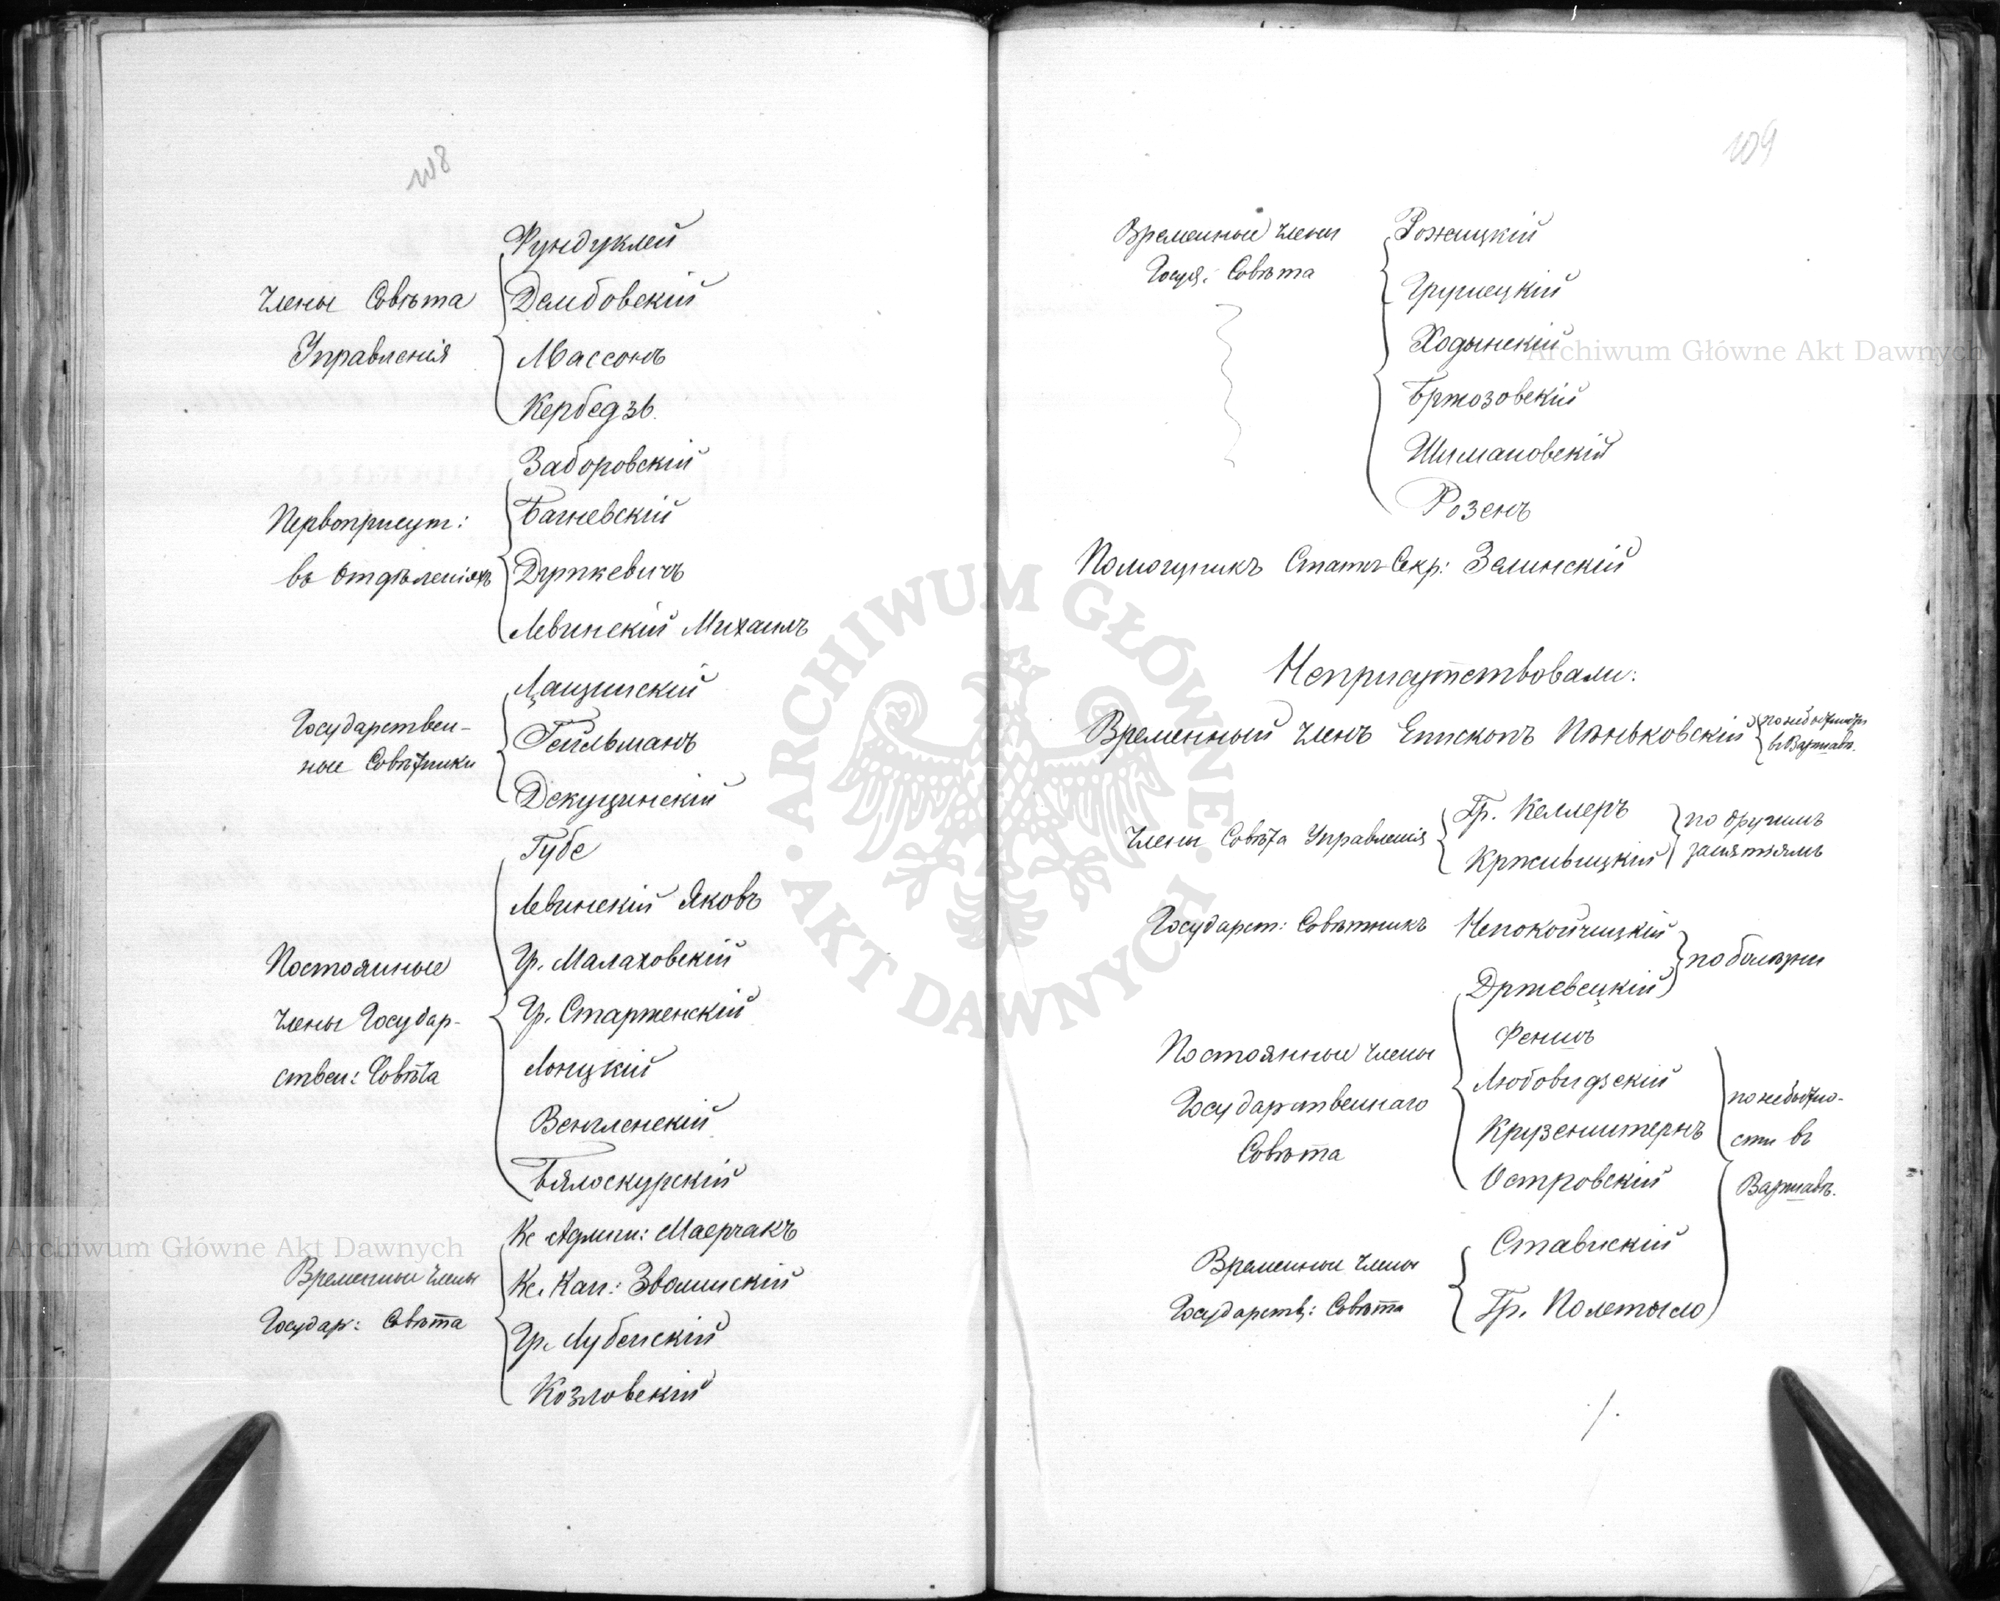 108
Фундуклей
Члены Совѣта
Дембовскій
Управленія
Массонъ
Кербедзь.
Заборовскій
Первоприсут:
Багневскій
въ Отдѣленіяхъ
Дуткевичъ
Левинскій Михаилъ
Лащинскій
Государствен-
ные Совѣтники
Гейльманъ
Декуцинскій
Губе
Левинскій Яковъ
Постоянные
Гр. Малаховскій
Члены Государ-
Гр. Старженскій
ствен: Совѣта
Лонцкій
Венгленскій
Бялоскурскій
Кс. Админ: Маерчакъ
Временные Члены
Кс. Кан: Зволинскій
Государ: Совѣта
Гр. Лубенскій
Козловскій
109
Временные Члены
Госуд. Совѣта
Рожицкій
Грушецкій
Ходынскій
Бржозовскій
Шимановскій
Розенъ
Помощникъ Статсъ Секр: Зелинскій
Неприсутствовали:
Временный Членъ Епископъ Пѣньковскій
по небытности
въ Варшавѣ.
Члены Совѣта Управленія
Гр. Келлеръ
Крживицкій
по другимъ
занятіямъ
Государст: Совѣтникъ Непокойчицкій
Држевецкій
по болѣзни
Феншъ
Постоянные Члены
Любовидзскій
Государственнаго
Крузенштернъ
Совѣта
Островскій
по небытно-
сти въ
Варшавѣ.
Временные Члены
Ставискій
Государств: Совѣта
Гр. Полетыло
Archiwum Główne Akt Dawnych
Archiwum Główne Akt Dawnych
ARCHIWUM GŁÓWNE
AKT DAWNYCH